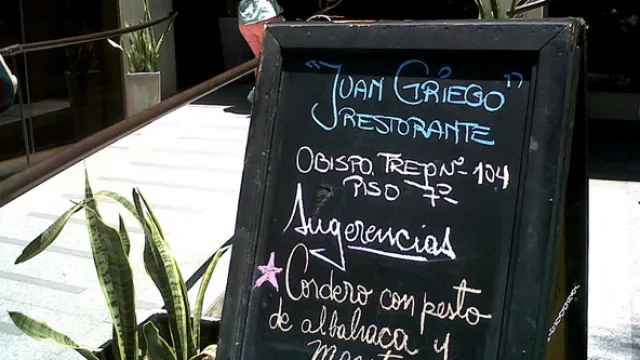 "JUAN GRIEGO"
RESTORANTE
OBISPO TREJO Nº 104
PISO 7º
Sugerencias
Cordero con pesto
de albahaca y